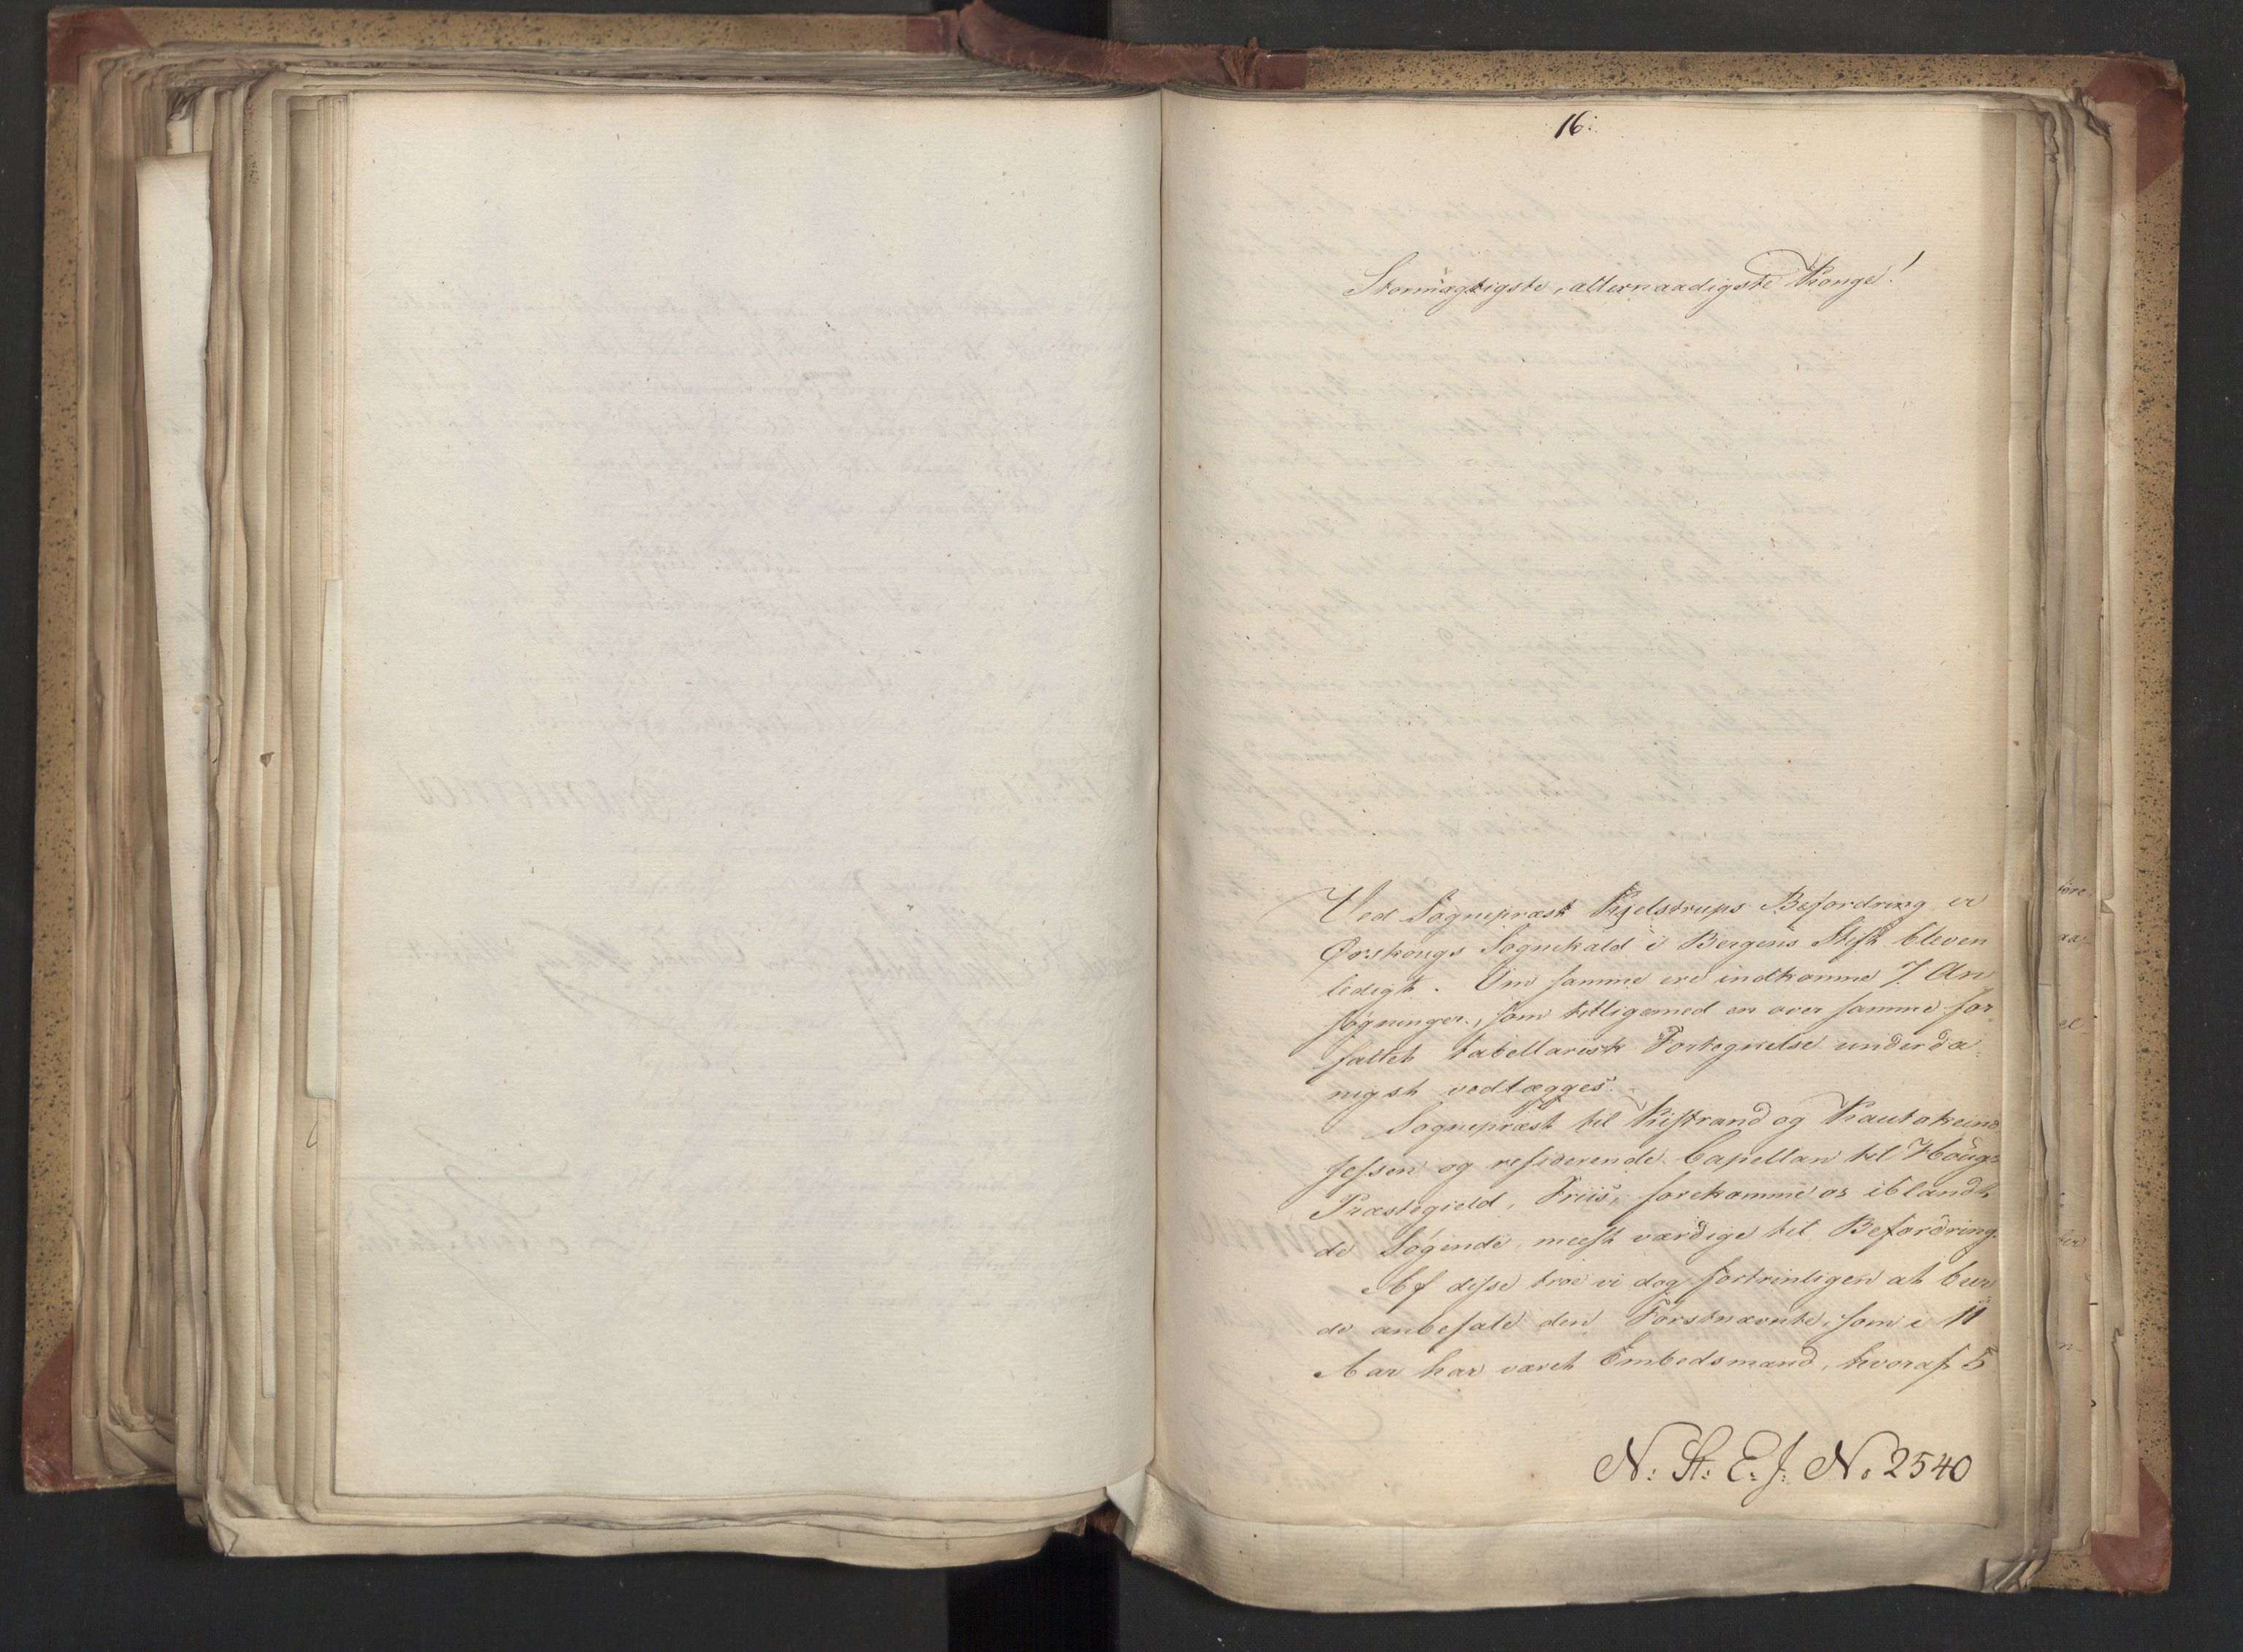 16:
Stormægtigste, allernaadigste Konge!
Ved Sognepræst Kjelstrups Befordring er
Ørskougs Sognekald i Bergens Stift bleven
ledigt. Om samme ere indkomne 7 An
søgninger, som tilligemed en over samme for-
fattet tabellarisk Fortegnelse underda-
nigst vedlægges.
Sognepræst til Kistrand og Kautokeino
Jessen og residerende Capellan til Houg's
Præstegield, Friis, forekomme os iblandt
de Søgende meest værdige til Befordring.
Af disse troe vi dog fortrinligen at bur
de anbefale den Førstnævnte, som i 11
Aar har været Embedsmand, hvoraf 5
N: St: E: J: No 2540